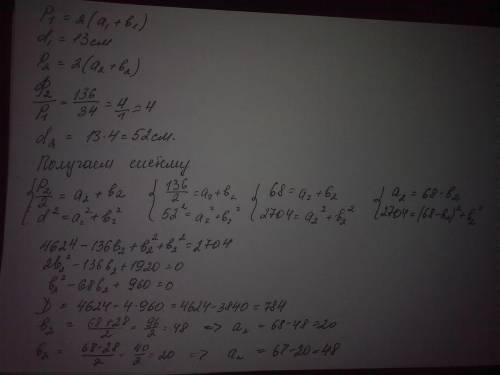 P₁ = 2(a₁+b₁)
d₁ = 13см
P₂ = 2(a₂+b₂)
P₂/P₁ = 136/34 = 4/1 = 4
d₂ = 13·4 = 52см.
Получаем систему
{P₂/2 = a₂+b₂ {136/2 = a₂+b₂ {68 = a₂+b₂ {a₂ = 68-b₂
{d² = a₂²+b₂² {52² = a₂²+b₂² {2704 = a₂²+b₂² {2704 = (68-b₂)²+b₂²
4624-136b₂+b₂²+b₂² = 2704
2b₂²-136b₂+1920 = 0
b₂²-68b₂+960 = 0
D = 4624-4·960 = 4624-3840 = 784
b₂ = (68+28)/2 = 96/2 = 48 => a₂ = 68-48 = 20
b₂ = (68-28)/2 = 40/2 = 20 => a₂ = 67-20 = 48